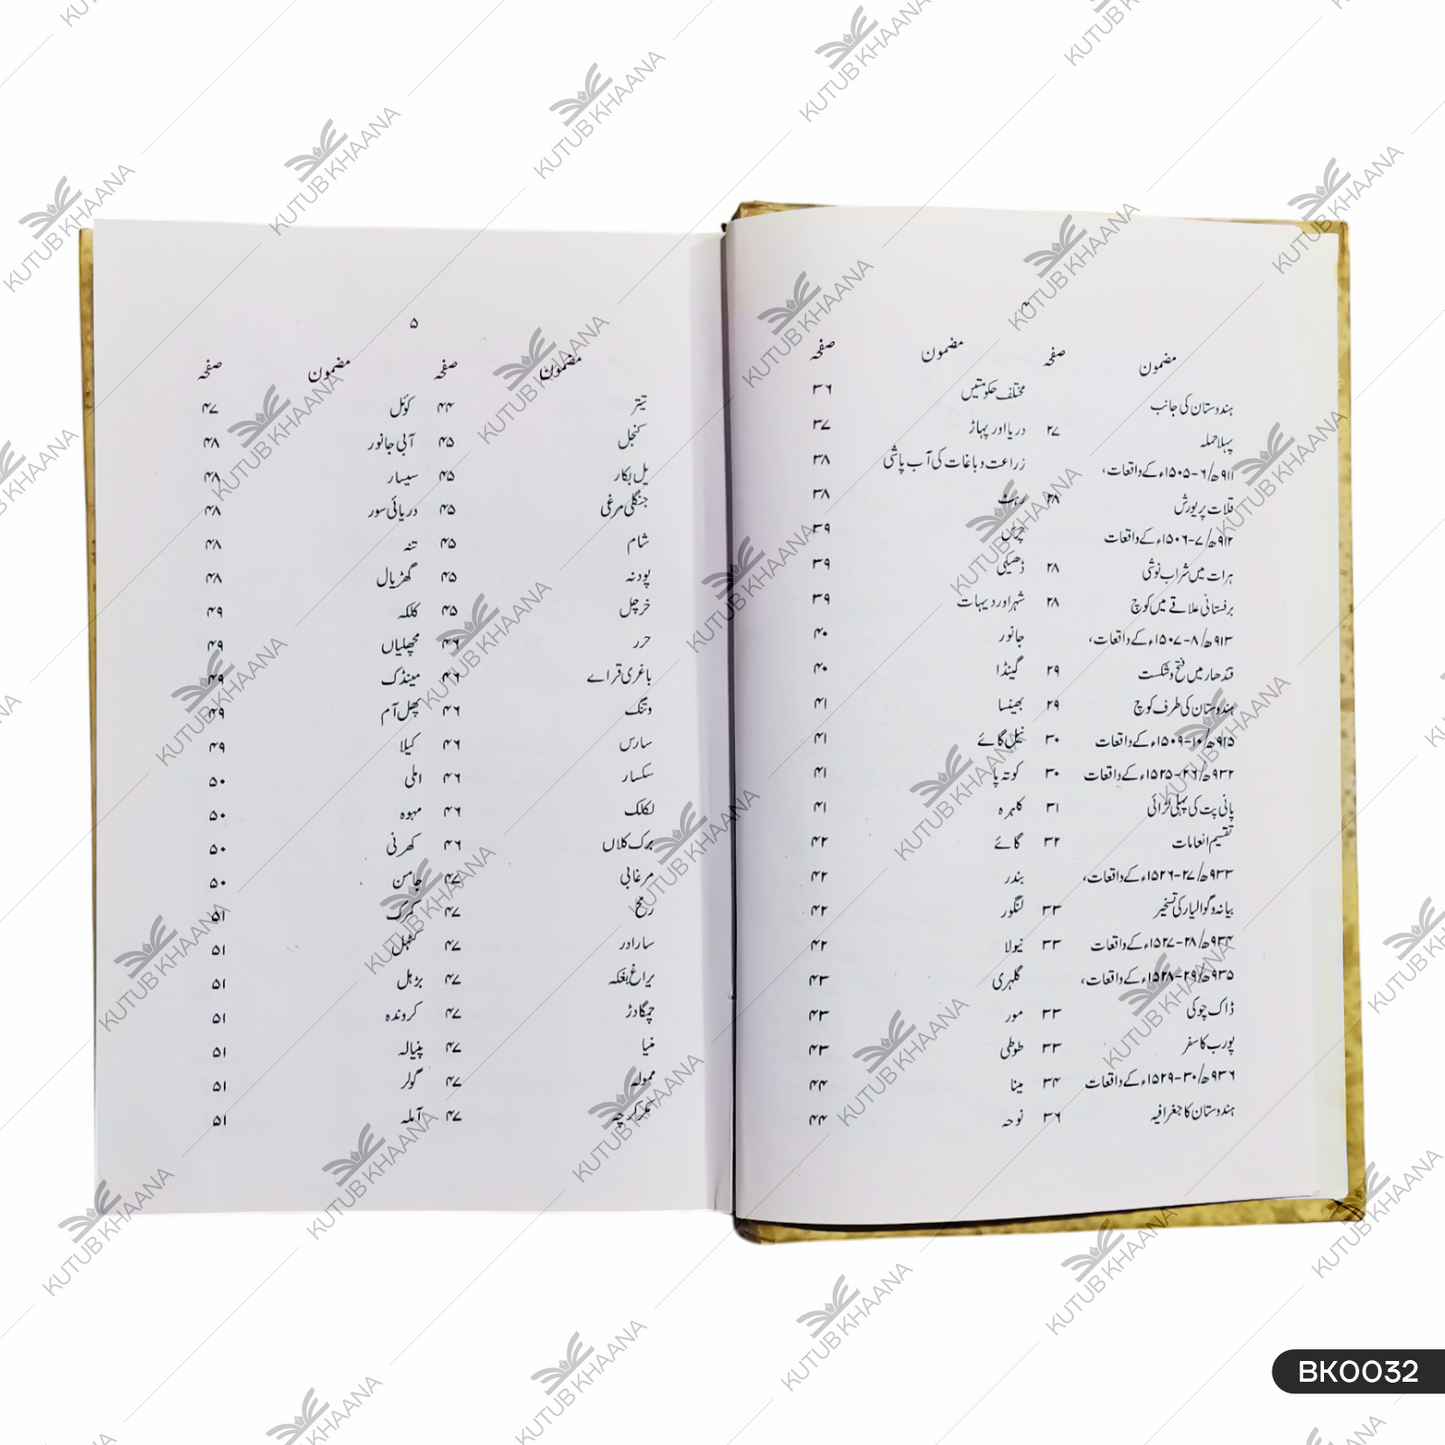 ۴
مضمون صفحہ مضمون صفحہ
ہندوستان کی جانب
پہلا حملہ ۲۷
۹۱۱ھ/۶-۱۵۰۵ء کے واقعات،
قلات پر یورش ۲۸
۹۱۲ھ/۷-۱۵۰۶ء کے واقعات
ہرات میں شراب نوشی ۲۸
برفستانی علاقے میں کوچ ۲۸
۹۱۳ھ/۸-۱۵۰۷ء کے واقعات،
قندھار میں فتح و شکست ۲۹
ہندوستان کی طرف کوچ ۲۹
۹۱۵ھ/۱۰-۱۵۰۹ء کے واقعات ۳۰
۹۳۲ھ/۲۶-۱۵۲۵ء کے واقعات ۳۰
پانی پت کی پہلی لڑائی ۳۱
تقسیم انعامات ۳۲
۹۳۳ھ/۲۷-۱۵۲۶ء کے واقعات،
بیانہ و گوالیار کی تسخیر ۳۳
۹۳۴ھ/۲۸-۱۵۲۷ء کے واقعات ۳۳
۹۳۵ھ/۲۹-۱۵۲۸ء کے واقعات،
ڈاک چوکی ۳۳
پورب کا سفر ۳۳
۹۳۶ھ/۳۰-۱۵۲۹ء کے واقعات ۳۴
ہندوستان کا جغرافیہ ۳۶
مختلف حکومتیں ۳۶
دریا اور پہاڑ ۳۷
زراعت و باغات کی آب پاشی ۳۸
رہٹ ۳۸
چرس ۳۹
ڈھیکی ۳۹
شہر اور دیہات ۳۹
جانور ۴۰
گینڈا ۴۰
بھینسا ۴۱
نیل گائے ۴۱
کوتہ پا ۴۱
کلہرہ ۴۱
گائے ۴۲
بندر ۴۲
لنگور ۴۲
نیولا ۴۲
گلہری ۴۳
مور ۴۳
طوطی ۴۳
مینا ۴۴
نوحہ ۴۴
۵
مضمون صفحہ مضمون صفحہ
تیتر ۴۴
کنجل ۴۵
یل بکار ۴۵
جنگلی مرغی ۴۵
شام ۴۵
پودنہ ۴۵
خرچل ۴۵
حرر ۴۶
باغری قراے ۴۶
ونگ ۴۶
سارس ۴۶
سکسار ۴۶
لکلک ۴۶
برک کلاں ۴۶
مرغابی ۴۷
رمح ۴۷
سارادر ۴۷
یراغ بغکہ ۴۷
چمگادڑ ۴۷
منیا ۴۷
ممولہ ۴۷
کرکرچہ ۴۷
کوئل ۴۷
آبی جانور ۴۸
سیسار ۴۸
دریائی سور ۴۸
تنہ ۴۸
گھڑیال ۴۸
کلکہ ۴۹
مچھلیاں ۴۹
مینڈک ۴۹
پھل آم ۴۹
کیلا ۴۹
املی ۵۰
مہوہ ۵۰
کھرنی ۵۰
جامن ۵۰
کرک ۵۱
کٹہل ۵۱
بڑہل ۵۱
کروندہ ۵۱
پنیالہ ۵۱
گولر ۵۱
آملہ ۵۱
KUTUB KHAANA
BK0032